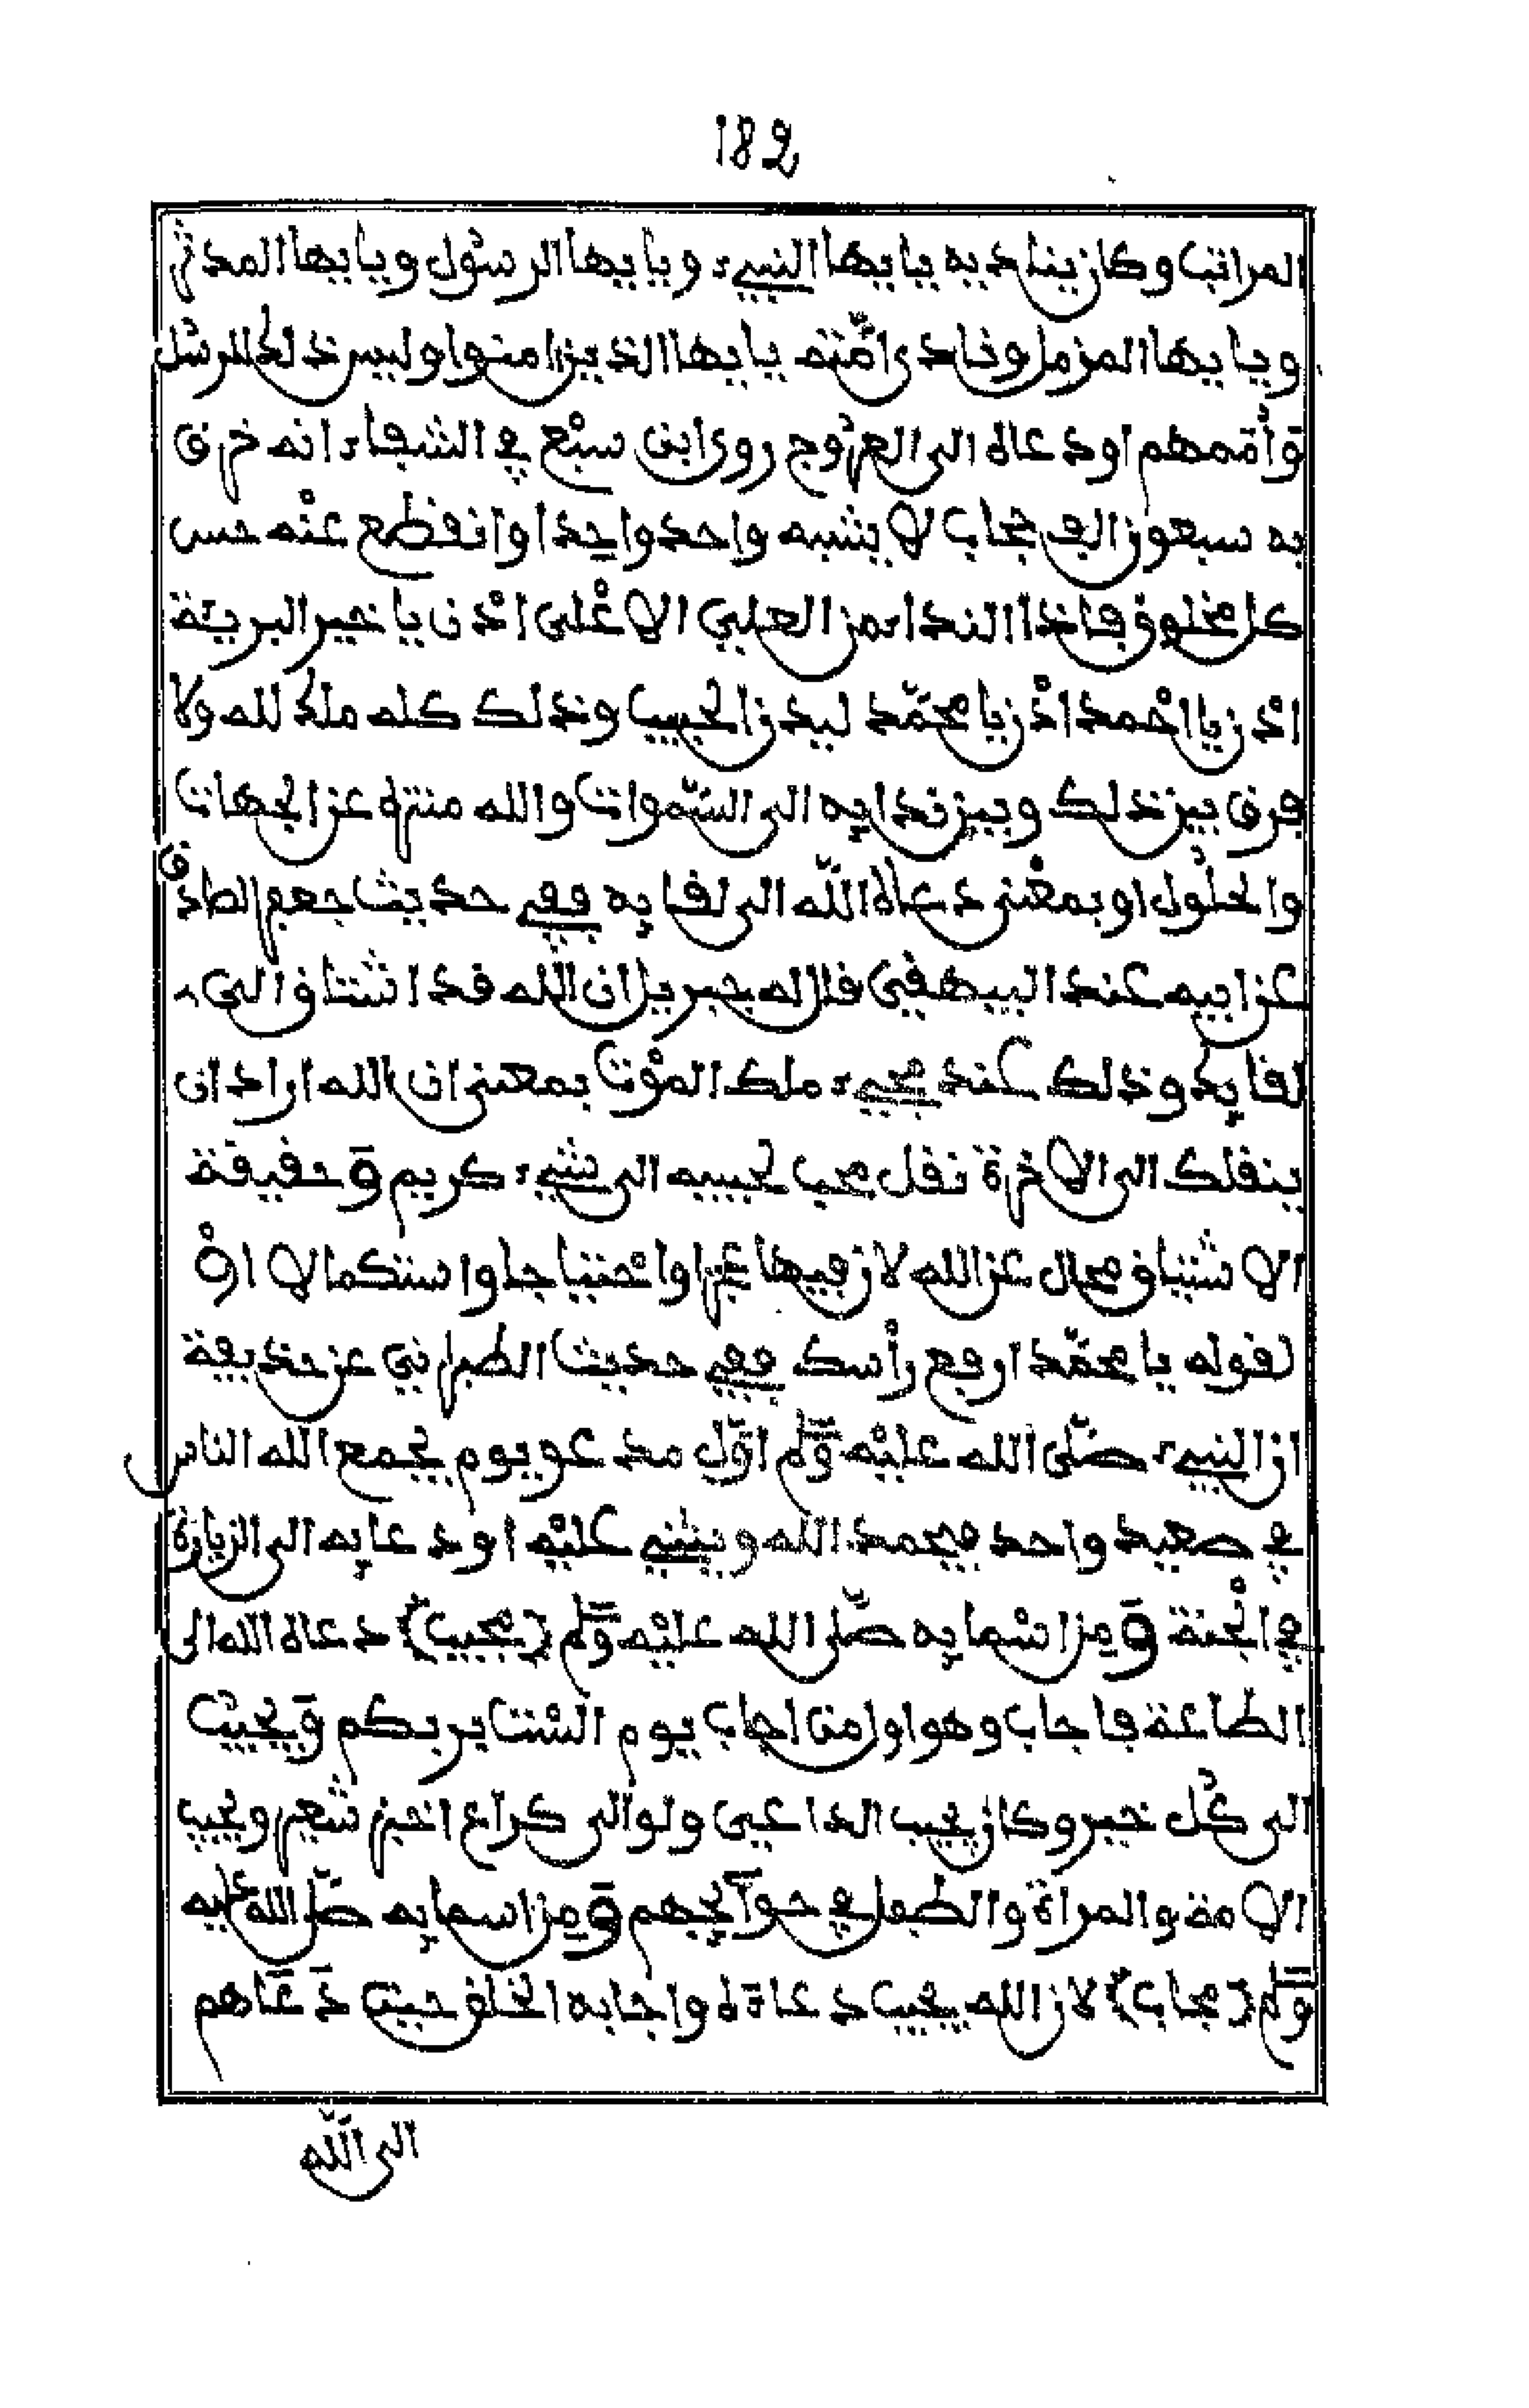 182
المراتب وكان يناديه يايها النبيء ويايها الرسول ويايها المدثر
ويايها المزمل ونادى أمّته يايها الذين امنوا وليس ذلك للرسل
وأممهم او دعاه الى العروج روى ابن سبع في الشفاء انه خرق
به سبعون الف حجاب لا يشبه واحد واحدا وانقطع عنه حس
كل مخلوق فاذا النداء من العلي الاعْلى ادْن يا خير البرية
ادْن يا احْمد ادْن يا محمّد ليدن الحبيب وذلك كله ملك لله ولا
فرق بين ذلك وبين ندايه الى السّموات والله منزه عن الجهات
والحلول او بمعْنى دعاه اللّه الى لقايه ففي حديث جعفر الصادق
عن ابيه عند البيهقي قال له جبريل ان الله قد اشتاق الى
لقايك وذلك عند مجيء ملك الموْت بمعنى ان الله اراد ان
ينقلك الى الاخرة نقل محب لحبيبه الى شيء كريم وحقيقة
الاشتياق محال عن الله لان فيها عجزا واحْتياجا واستكمالا اوْ
لقوله يا محمّد ارفع رأسك ففي حديث الطبراني عن حذيفة
ان النبيء صلّى الله عليْه وسلم اوّل مدعو يوم يجمع الله الناس
في صعيد واحد فيحمد الله ويثني عليْه او دعايه الى الزيارة
في الجْنة ومن اسْمايه صلّى الله عليْه وسلم (مجيب) دعاه الله الى
الطاعة فاجاب وهو اول من اجاب يوم ألسْت بربكم ويجيب
الى كُل خير وكان يجيب الداعي ولو الى كراع اخبز شعير ويجيب
الامة والمراة والطفل في حوآيجهم ومن اسمايه صلّى الله عليه
وسلم (مجاب) لان الله يجيب دعاءه واجابه الخلق حيث دعاهم
الى اللّه